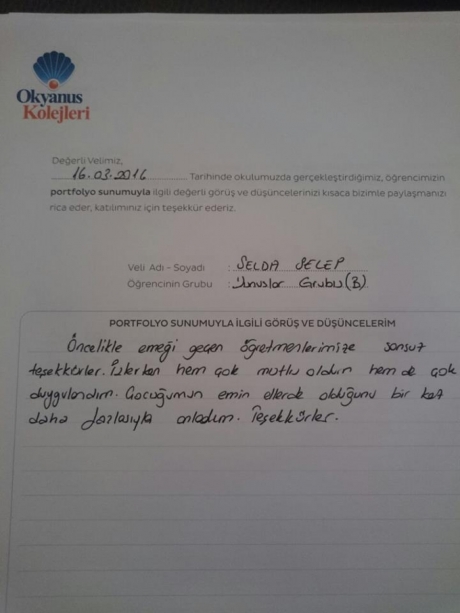 Okyanus
Kolejleri
Değerli Velimiz,
16.03.2016 Tarihinde okulumuzda gerçekleştirdiğimiz, öğrencimizin
portfolyo sunumuyla ilgili değerli görüş ve düşüncelerinizi kısaca bizimle paylaşmanızı
rica eder, katılımınız için teşekkür ederiz.
Veli Adı - Soyadı : SELDA SELEP
Öğrencinin Grubu : Yunuslar Grubu (B)
PORTFOLYO SUNUMUYLA İLGİLİ GÖRÜŞ VE DÜŞÜNCELERİM
Öncelikle emeği geçen öğretmenlerimize sonsuz
teşekkürler. İzlerken hem çok mutlu oldum hem de çok
duygulandım. Çocuğumun emin ellerde olduğunu bir kat
daha fazlasıyla anladım. Teşekkürler.